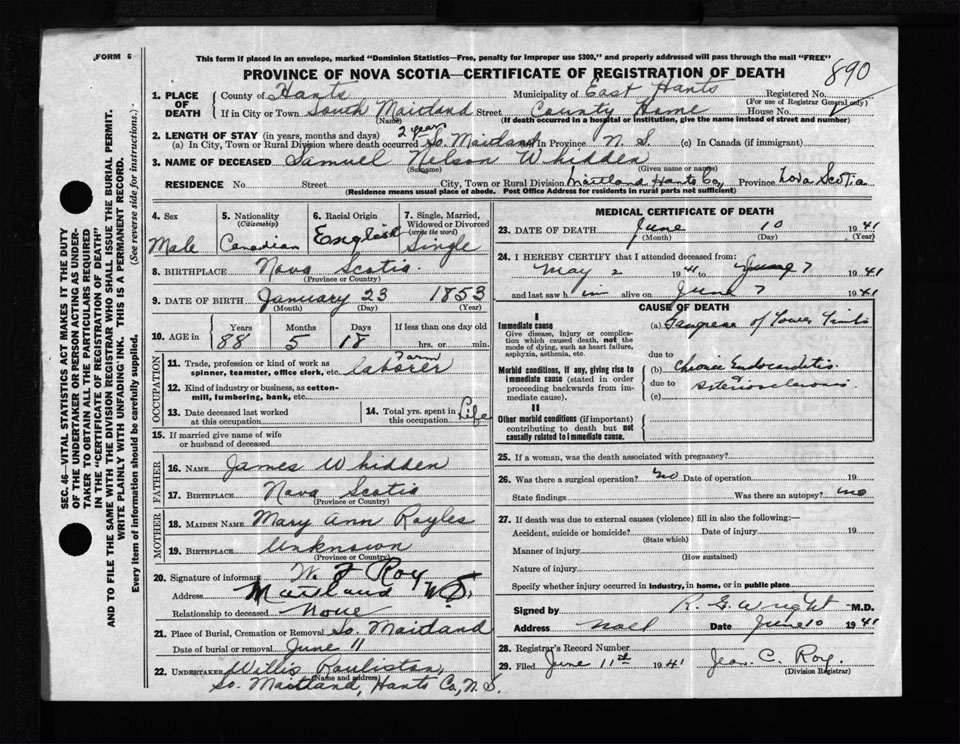 FORM 6
This form if placed in an envelope, marked "Dominion Statistics—Free, penalty for improper use $300," and properly addressed will pass through the mail "FREE"
890
PROVINCE OF NOVA SCOTIA—CERTIFICATE OF REGISTRATION OF DEATH
1. PLACE OF DEATH
County of Hants Municipality of East Hants Registered No.
(For use of Registrar General only)
If in City or Town South Maitland Street County Home House No.
(Name) (If death occurred in a hospital or institution, give the name instead of street and number)
2. LENGTH OF STAY (in years, months and days) 2 years
(a) In City, Town or Rural Division where death occurred So. Maitland In Province N. S. (c) In Canada (if immigrant)
3. NAME OF DECEASED Samuel Nelson Whidden
(Surname) (Given name or names)
RESIDENCE No. Street City, Town or Rural Division Maitland Hants Co Province Nova Scotia
(Residence means usual place of abode. Post Office Address for residents in rural parts not sufficient)
4. Sex Male
5. Nationality (Citizenship) Canadian
6. Racial Origin English
7. Single, Married, Widowed or Divorced (write the word) Single
8. BIRTHPLACE Nova Scotia
(Province or Country)
9. DATE OF BIRTH January 23 1853
(Month) (Day) (Year)
10. AGE in Years Months Days If less than one day old
88 5 18 hrs. or min.
OCCUPATION
11. Trade, profession or kind of work as spinner, teamster, office clerk, etc. Farm laborer
12. Kind of industry or business, as cotton-mill, lumbering, bank, etc.
13. Date deceased last worked at this occupation
14. Total yrs. spent in this occupation Life
15. If married give name of wife or husband of deceased
FATHER
16. NAME James Whidden
17. BIRTHPLACE Nova Scotia
MOTHER
18. MAIDEN NAME Mary Ann Royles
19. BIRTHPLACE Unknown
(Province or Country)
20. Signature of informant W. F Roy
Address Maitland N S
Relationship to deceased None
21. Place of Burial, Cremation or Removal So. Maitland
Date of burial or removal June 11
22. UNDERTAKER Willis
(Name and address)
So. Maitland, Hants Co, N. S.
MEDICAL CERTIFICATE OF DEATH
23. DATE OF DEATH June 10 1941
(Month) (Day) (Year)
24. I HEREBY CERTIFY that I attended deceased from:
May 2 1941 to June 7 1941
and last saw him alive on June 7 1941
CAUSE OF DEATH
I
Immediate cause
Give disease, injury or complication which caused death, not the mode of dying, such as heart failure, asphyxia, asthenia, etc.
(a) Gangrene of Lower Limbs
due to
Morbid conditions, if any, giving rise to immediate cause (stated in order proceeding backwards from immediate cause).
(b) Chronic Endocarditis
due to arteriosclerosis
(c)
II
Other morbid conditions (if important) contributing to death but not causally related to immediate cause.
25. If a woman, was the death associated with pregnancy?
26. Was there a surgical operation? no Date of operation 19
State findings Was there an autopsy? no
27. If death was due to external causes (violence) fill in also the following:—
Accident, suicide or homicide? Date of injury 19
(State which)
Manner of injury
(How sustained)
Nature of injury
Specify whether injury occurred in industry, in home, or in public place
Signed by R. G. Wright M.D.
Address Noel Date June 10 1941
28. Registrar's Record Number
29. Filed June 11th 1941 Jean C. Roy.
(Division Registrar)
SEC. 46—VITAL STATISTICS ACT MAKES IT THE DUTY
OF THE UNDERTAKER OR PERSON ACTING AS UNDER-
TAKER TO OBTAIN ALL THE PARTICULARS REQUIRED
IN THE "CERTIFICATE OF REGISTRATION OF DEATH"
AND TO FILE THE SAME WITH THE DIVISION REGISTRAR WHO SHALL ISSUE THE BURIAL PERMIT.
WRITE PLAINLY WITH UNFADING INK. THIS IS A PERMANENT RECORD.
Every item of information should be carefully supplied. (See reverse side for instructions.)